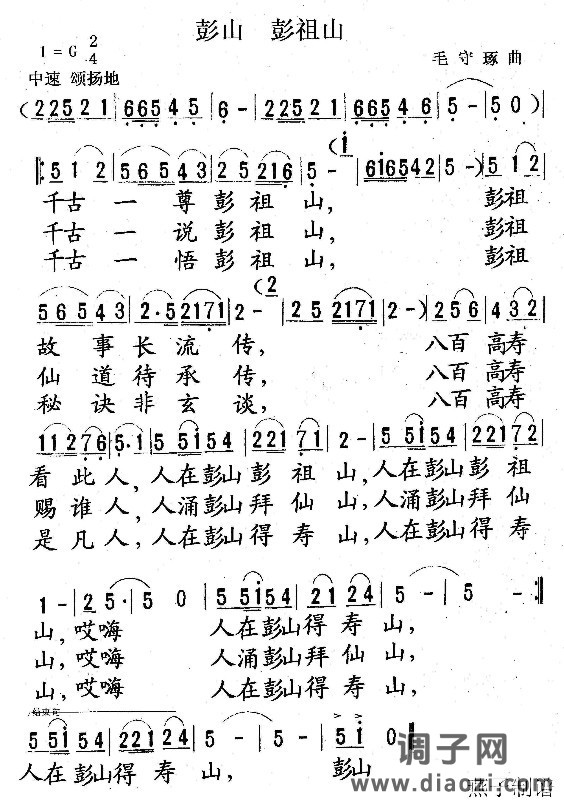 彭山 彭祖山
1=G 2/4
毛守琢 曲
中速 颂扬地
(22521 | 66545 | 6 - | 225121 | 665646 | 5 - | 5 0)
512 | 56543 | 25216 | 5 - (i | 6i6542 | 5 -) | 512
千古一尊彭祖山, 彭祖
千古一说彭祖山, 彭祖
千古一悟彭祖山, 彭祖
56543 | 2·52171 | 2 - (2 | 2 - | 252171 | 2 -) | 256 | 432
故事长流传, 八百高寿
仙道待承传, 八百高寿
秘诀非玄谈, 八百高寿
11276 | 5·1 | 5 5i54 | 22171 | 2 - | 5 5i54 | 22172
看此人,人在彭山彭祖山,人在彭山彭祖
赐谁人,人涌彭山拜仙山,人涌彭山拜仙
是凡人,人在彭山得寿山,人在彭山得寿
1 - | 25· | 5 0 | 5 5i54 | 2124 | 5 - | 5 - :||
山,哎嗨 人在彭山得寿山,
山,哎嗨 人涌彭山拜仙山,
山,哎嗨 人在彭山得寿山,
结束句
5 5i 54 | 22124 | 5 - | 5 - | 5i | 5 0 ||
人在彭山得寿山, 彭山
调子网
www.diaozi.com